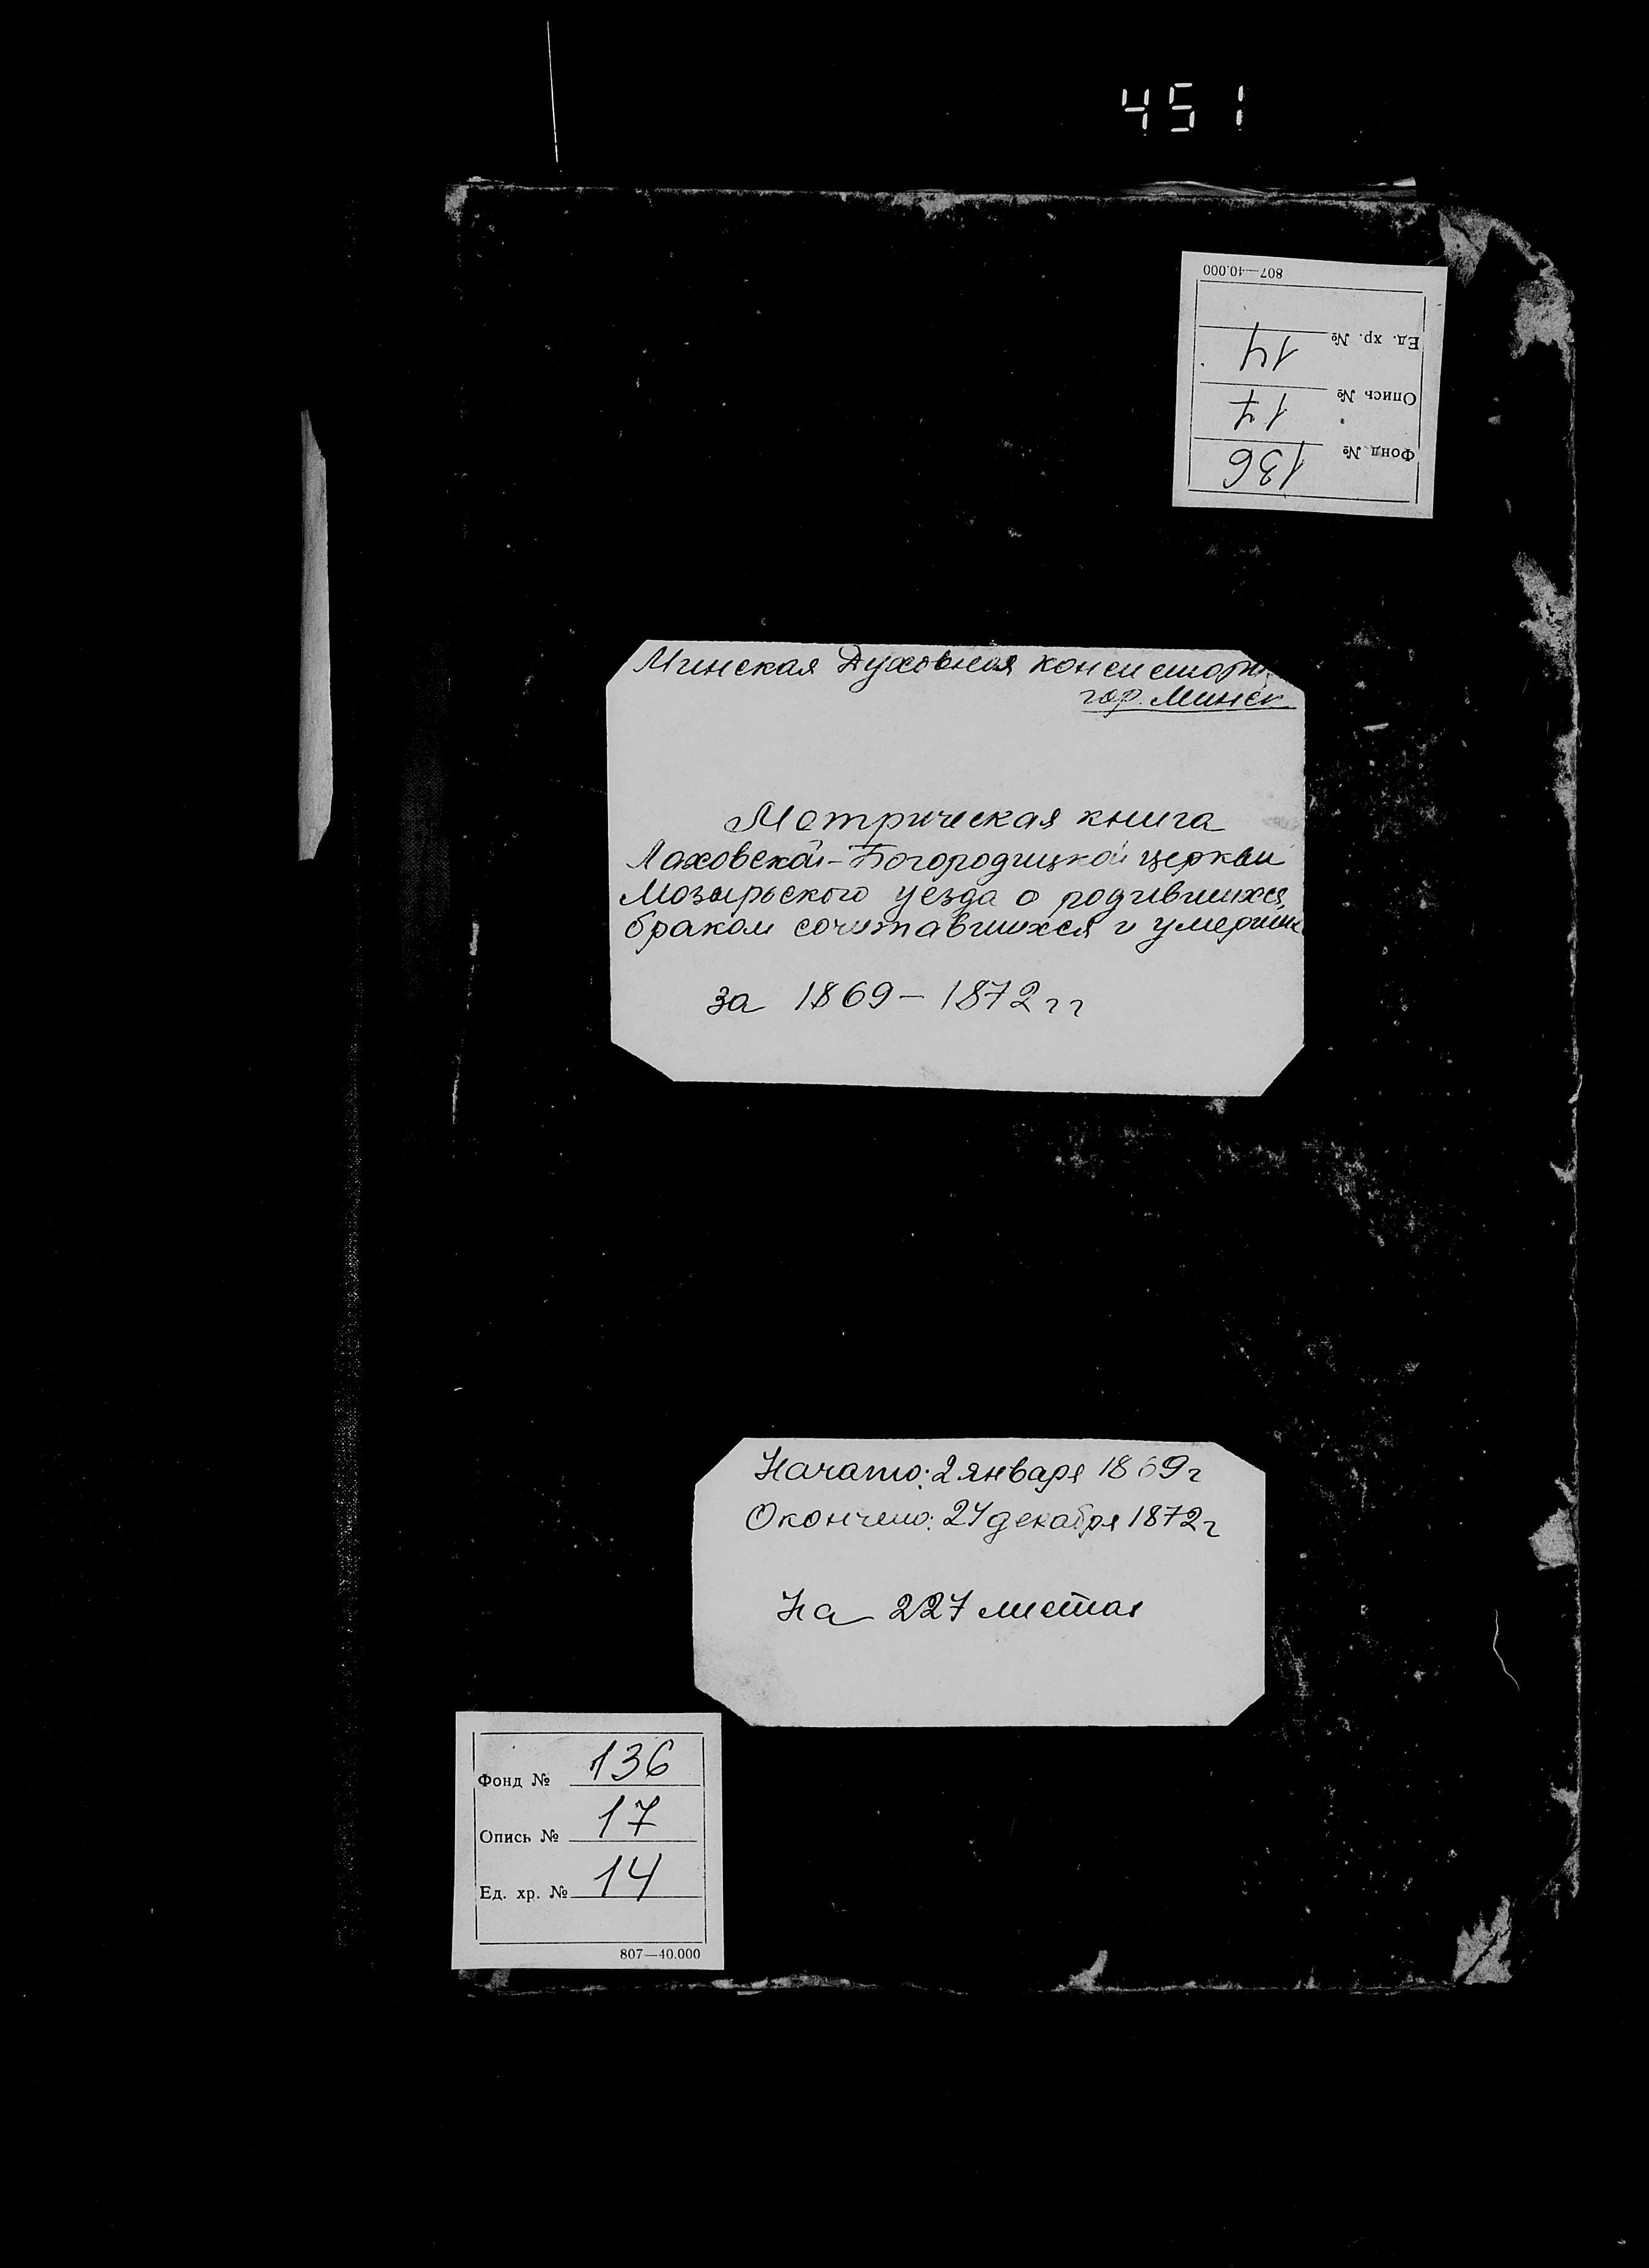 451
807—40.000
Ед. хр. № 14
Опись № 17
Фонд № 136
Минская Духовная консистори
гор. Минск
Метрическая книга
Лаховской-Богородицкой церкви
Мозырьского уезда о родившихся,
браком сочитавшихся и умерших
за 1869-1872 гг
Начато: 2 января 1869 г
Окончено: 24 декабря 1872 г
На 227 листах
Фонд № 136
Опись № 17
Ед. хр. № 14
807—40.000